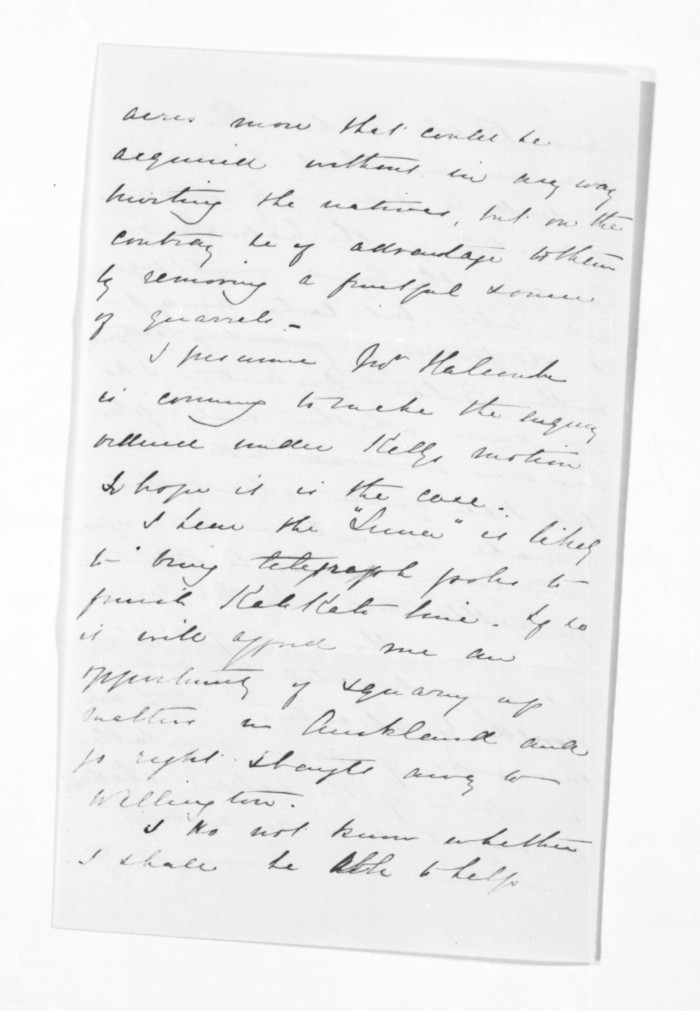 acres more that could be
acquired without in any way
hurting the natives, but on the
contrary be of advantage to them
by removing a fruitful source
of quarrels.
I presume Mr Halcombe
is coming to make the inquiry
ordered under Kellys motion
I hope it is the case.
I hear the "Luna" is likely
to bring telegraph poles to
finish KatiKati line. If so
it will afford me an
opportunity of squaring up
matters in Auckland and
go right straight away to
Wellington.
I do not know whether
I shall be able to help